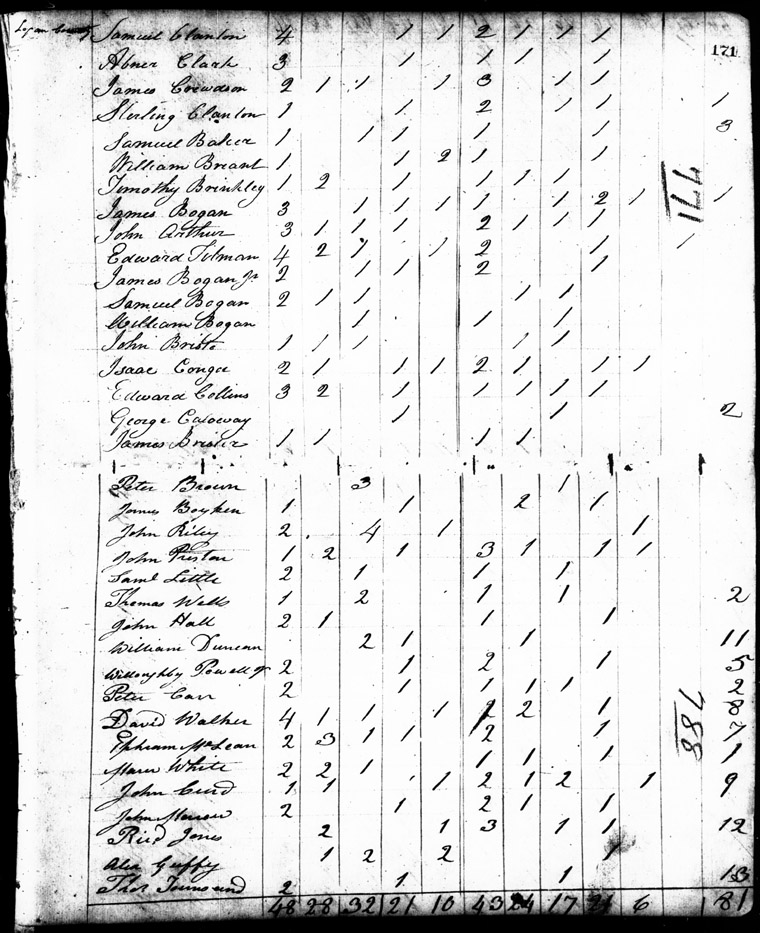 Logan County Samuel Clanton 4 1 1 2 1 1 1
171
Abner Clark 3 1 1 1 1
James Crewdson 2 1 1 1 3 1 1
Sterling Clanton 1 1 2 1 1 1
Samuel Baker 1 1 1 1 1 3
William Breant 1 1 2 1 1
Timothy Brinkley 1 2 1 1 1 1
771
James Bogan 3 1 1 1 1 1 1 2 1 1
John Arthur 3 1 1 1 2 1 1 1
Edward Tilman 4 2 1 1 2 1 1
James Bogan Jr 2 1 1 2 1
Samuel Bogan 2 1 1 1 1
William Bogan 1 1 1
John 1 1 1 1 1
Isaac Conger 2 1 1 1 2 1 1 1
Edward Collins 3 2 1 1 1 1 1
George Caloway 1 1 2
James 1 1 1 1
Peter Brown 3 1
James Boyken 1 1 2 1
John Riley 2 4 1 1
John Preston 1 2 1 3 1 1 1
Saml Little 2 1 1 1
Thomas Wells 1 2 1 1 2
John Hall 2 1 1 1
William Duncan 2 1 1 11
Willoughby Powell 2 1 2 1 5
Peter Carr 2 1 1 1 1 2
David Walker 4 1 1 1 2 2 1 8
788
Ephraim McLean 2 3 1 1 2 1 7
White 2 2 1 1 1 1 1
John Curd 1 1 1 2 1 2 1 9
John 2 1 2 1 1
Jones 2 1 3 1 1 12
Alex Guffy 1 2 2 1
Thos Townsend 2 1 1 13
48 28 32 21 10 43 24 17 21 6 81